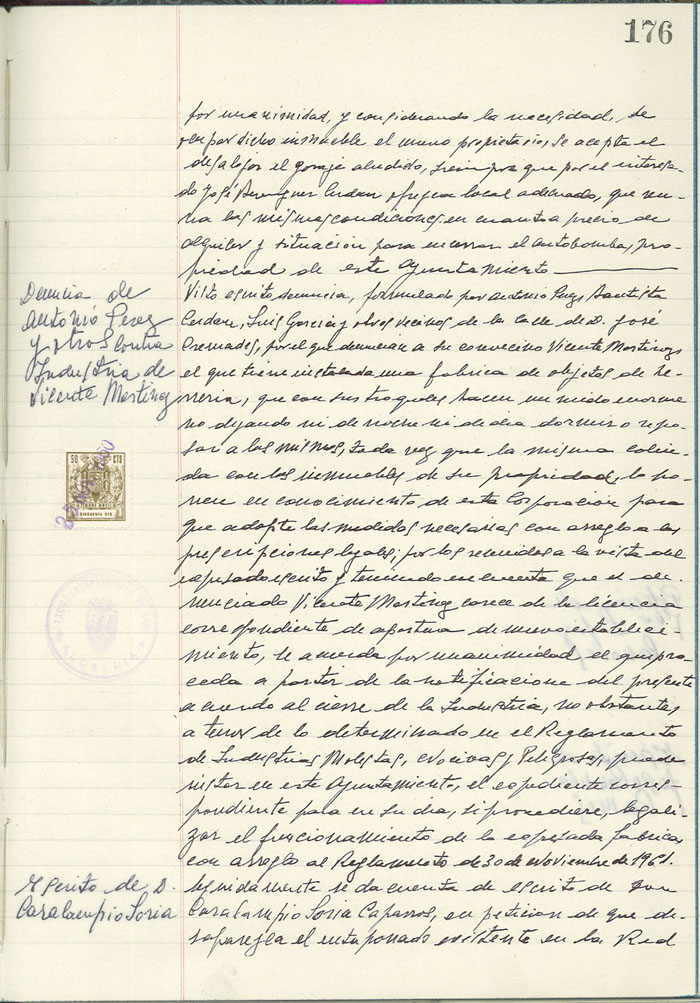 176
por unanimidad, y considerando la necesidad, de
ocupar dicho inmueble el nuevo propietario, se acepta el
desalojar el garaje aludido, siempre que por el interesa-
do José Berenguer Cerdan ofrezca local adecuado, que reu-
na las mismas condiciones en cuanto a precio de
alquiler y situación para encerrar el autobombas, pro-
piedad de este Ayuntamiento
Denuncia de
Antonio Perez
y otros contra
Industria de
Vicente Martinez
Visto escrito denuncia, formulado por Antonio Perez Bautista
Cerdan, Luis Garcia y otros vecinos de la calle de D. José
Cremades, por el que denuncian a su convecino Vicente Martinez
el que tiene instalada una fabrica de objetos de he-
rreria, que con sus troqueles hacen un ruido enorme
no dejando ni de noche ni de dia dormir o repo-
sar a los mismos, toda vez que la misma colin-
da con los inmuebles de su propiedad, lo po-
nen en conocimiento de esta Corporación para
que adopte las medidas necesarias con arreglo a las
prescripciones legales; por los reunidos a la vista del
expresado escrito y teniendo en cuenta que el de-
nunciado Vicente Martinez carece de la licencia
correspondiente de apertura de nuevo estableci-
miento, se acuerda por unanimidad el que pro-
ceda a partir de la notificacion del presente
acuerdo al cierre de la Industria, no obstante,
a tenor de lo determinado en el Reglamento
de Industrias Molestas, Nocivas y Peligrosas, puede
instar en este Ayuntamiento, el expediente corres-
pondiente para en su dia, si procediere, legali-
zar el funcionamiento de la expresada fabrica
con arreglo al Reglamento de 30 de Noviembre de 1961.
50 CTS
ALCALDIA
Escrito de D.
Caralampio Soria
Seguidamente se da cuenta de escrito de Don
Caralampio Soria Caparros, en peticion de que de-
saparezca el entaponado existente en la Red